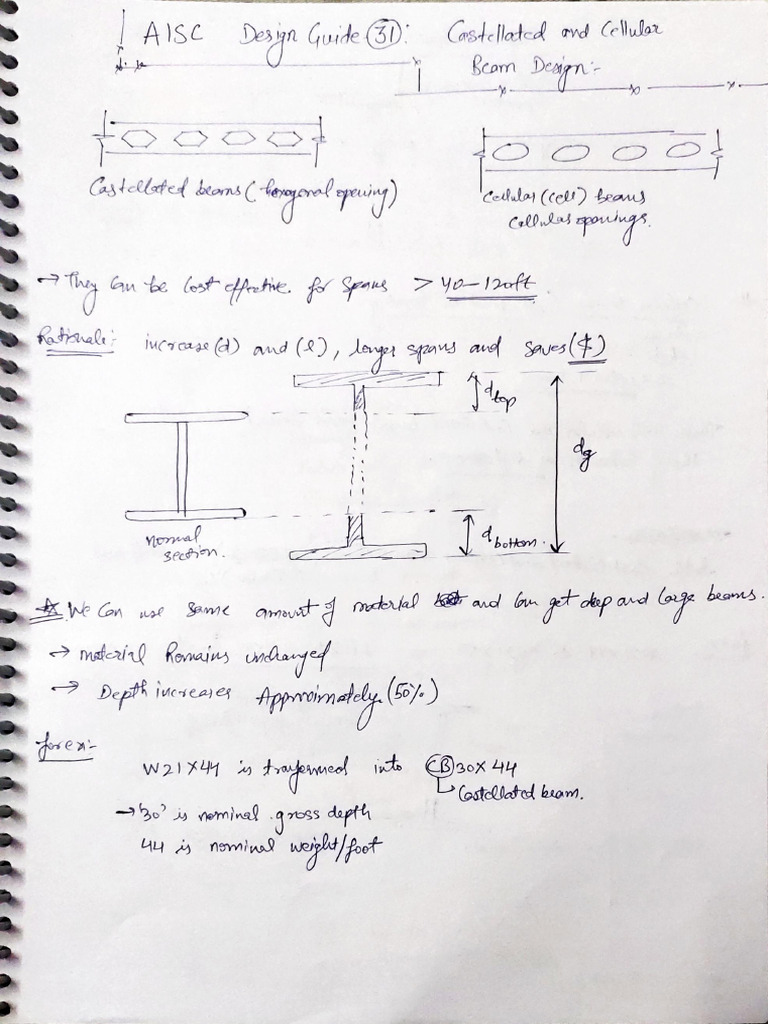 AISC Design Guide (31): Castellated and Cellular
Beam Design:-
Castellated beams (hexagonal opening)
Cellular (cell) beams
Cellular openings.
→ They can be cost effective for spans > 40-120ft
Rationale: increase (d) and (l), longer spans and saves ($)
d top
dg
d bottom.
normal
section.
☆ We can use same amount of material and can get deep and large beams.
→ material Remains unchanged
→ Depth increases Approximately (50%)
for ex:-
W21x44 is trasformed into CB30x44
Castellated beam.
→ '30' is nominal gross depth
44 is nominal weight/foot